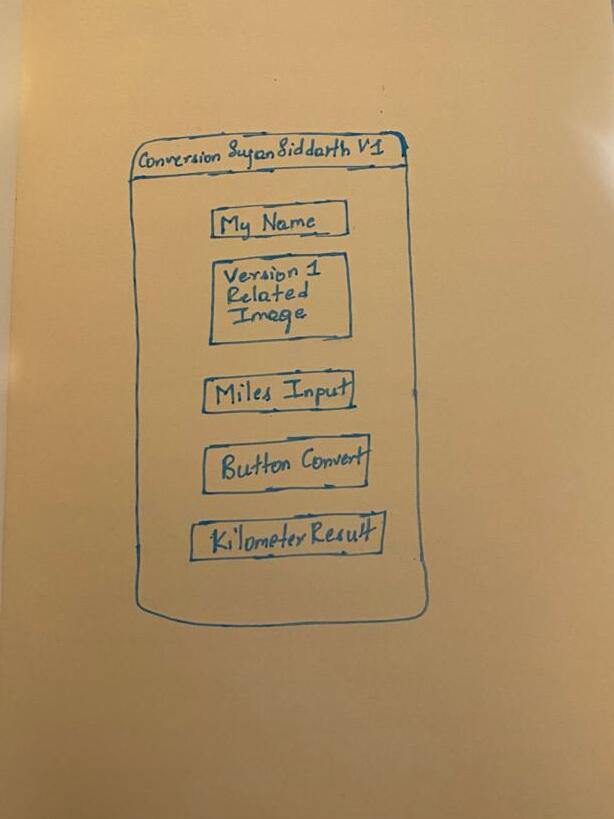 Conversion Sujan Siddarth V1
My Name
Version 1
Related
Image
Miles Input
Button Convert
Kilometer Result